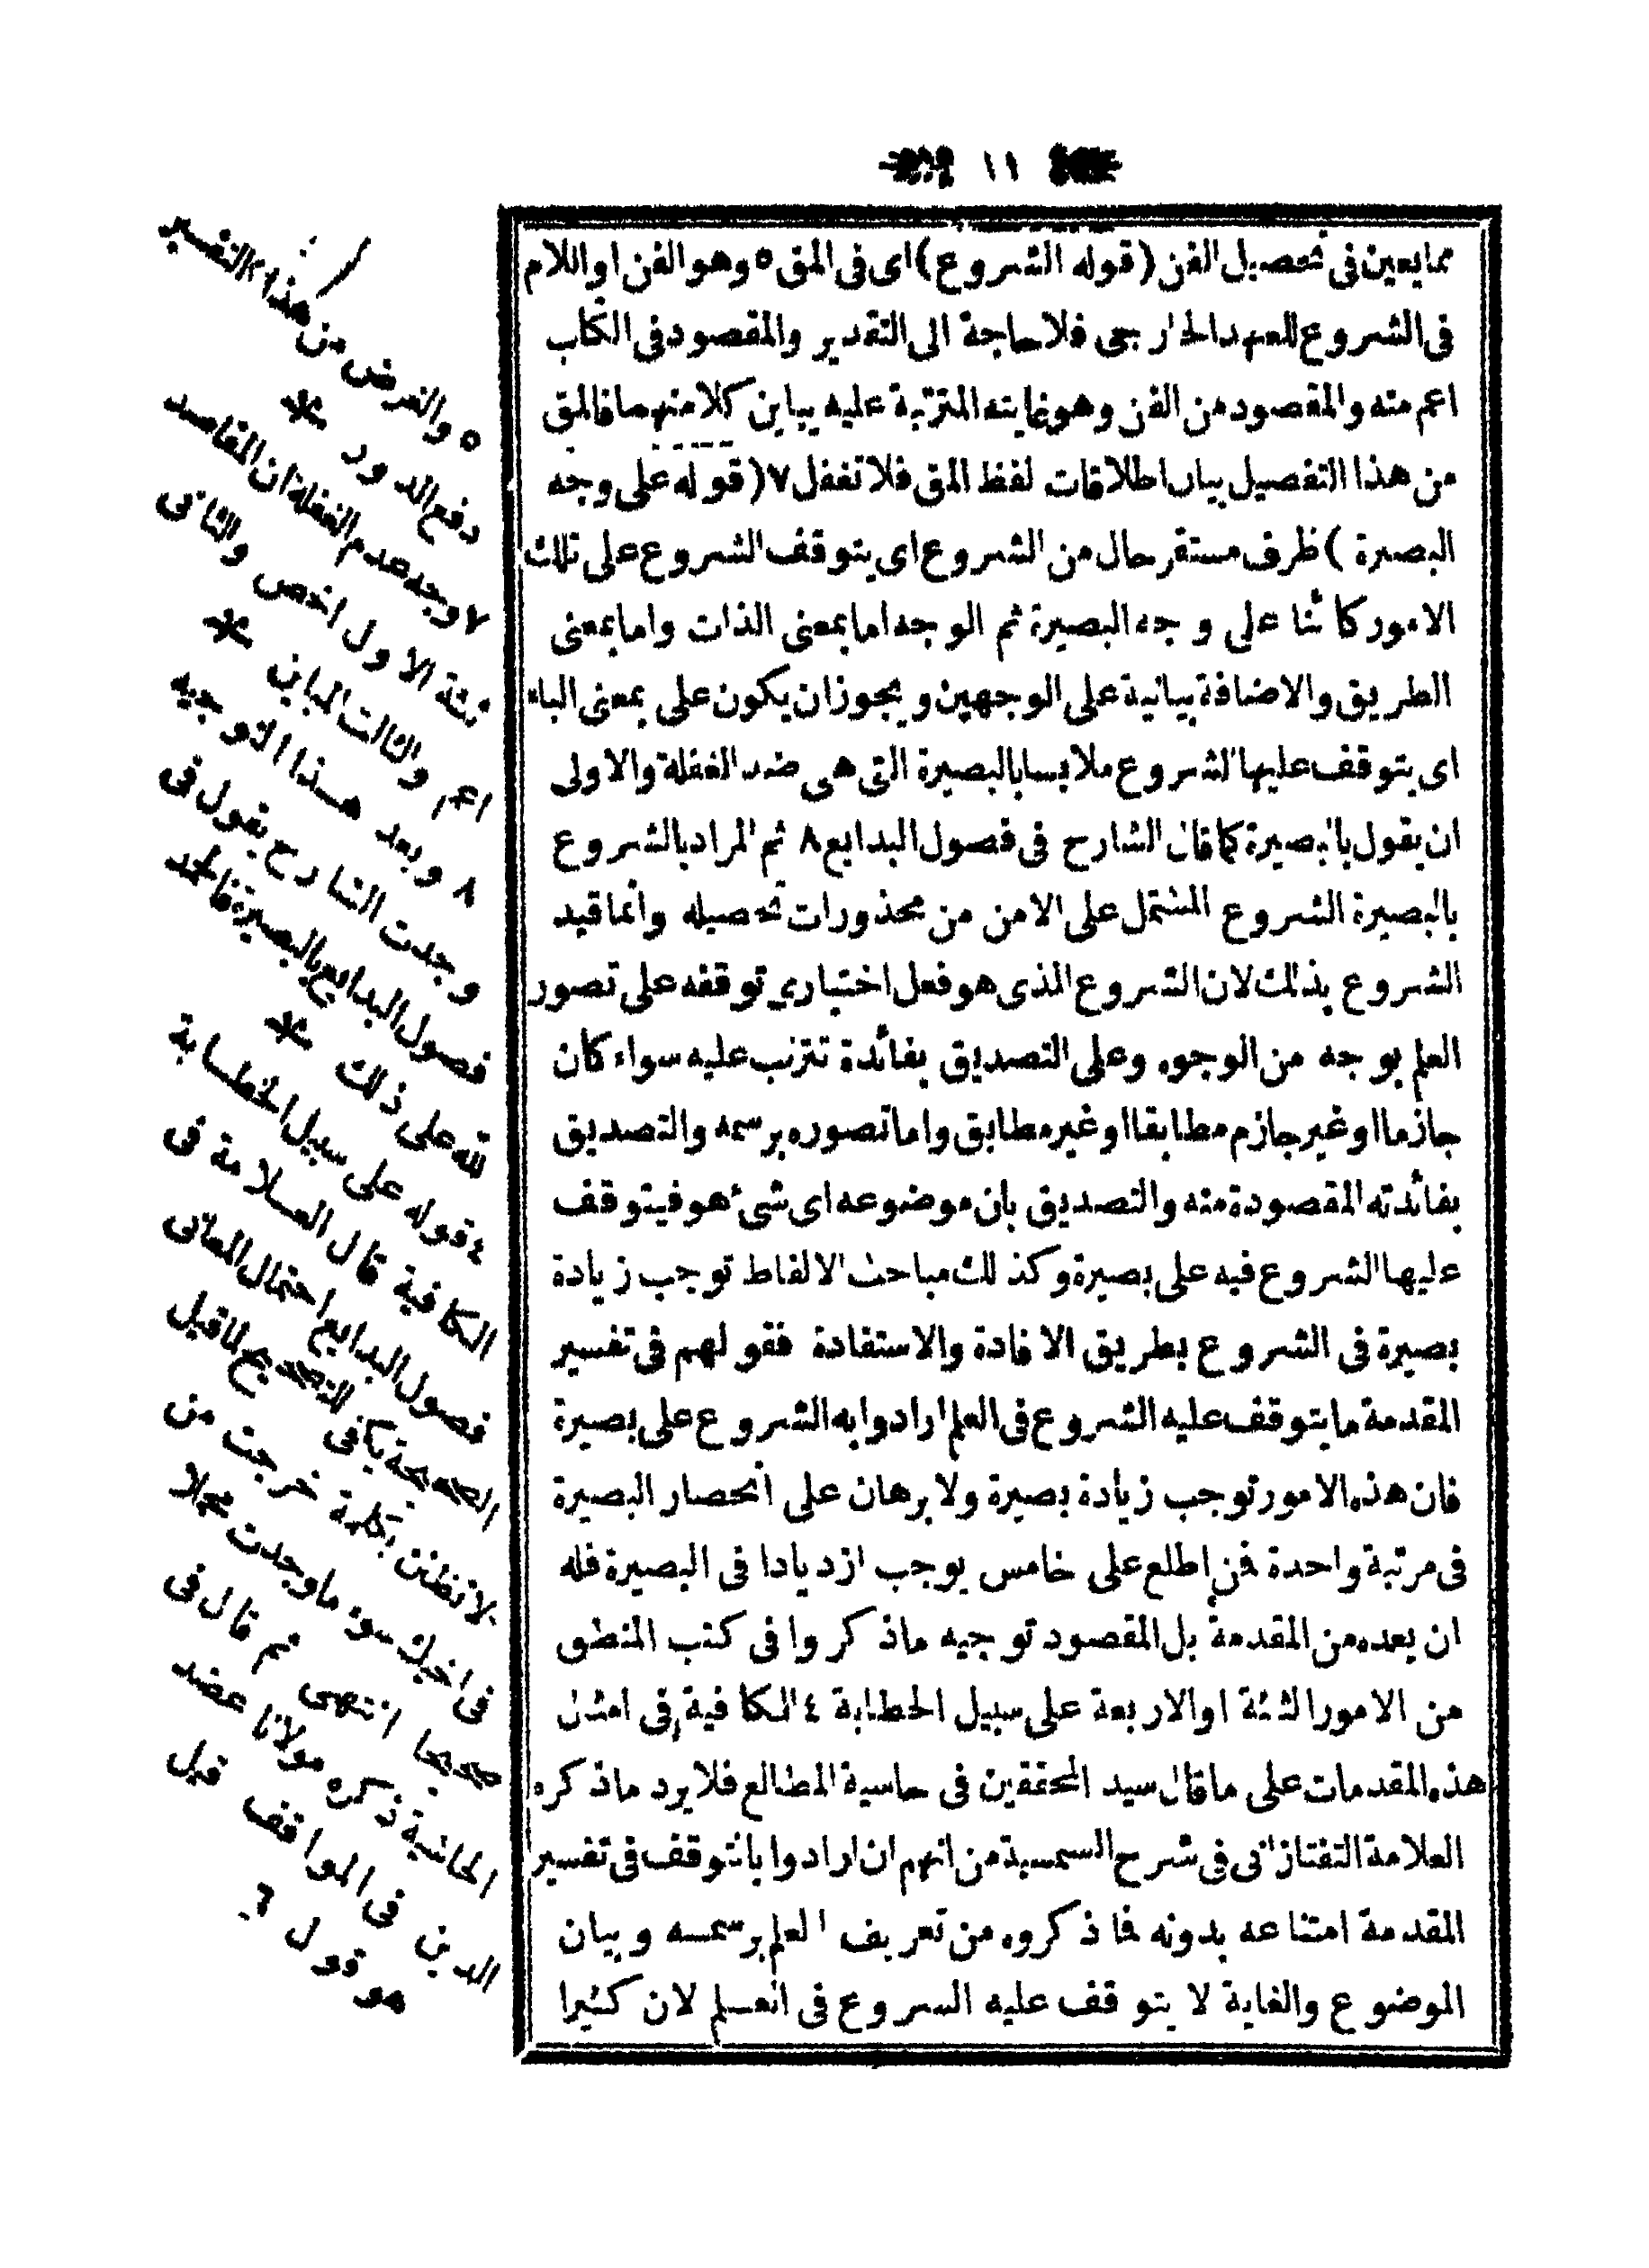 ١١
مما يعين فى تحصيل الفن (قوله الشروع) اى فى المق ٥ وهو الفن او اللام
فى الشروع للعهد الخارجى فلا حاجة الى التقدير والمقصود فى الكتاب
اعم منه والمقصود من الفن وهو غايته المترتبة عليه يباين كلا منهما فالمق
من هذا التفصيل بيان اطلاقات لفظ المق فلا تغفل ٧ (قوله على وجه
البصيرة) ظرف مستقر حال من الشروع اى يتوقف الشروع على تلك
الامور كائنا على وجه البصيرة ثم الوجه اما بمعنى الذات واما بمعنى
الطريق والاضافة بيانية على الوجهين ويجوز ان يكون على بمعنى الباء
اى يتوقف عليها الشروع ملابسا بالبصيرة التى هى ضد الغفلة والاولى
ان يقول بالبصيرة كما قال الشارح فى فصول البدايع ٨ ثم المراد بالشروع
بالبصيرة الشروع المشتمل على الامن من محذورات تحصيله وانما قيد
الشروع بذلك لان الشروع الذى هو فعل اختيارى توقفه على تصور
العلم بوجه من الوجوه وعلى التصديق بفائدة تترتب عليه سواء كان
جازما او غير جازم مطابقا او غير مطابق واما تصوره برسمه والتصديق
بفائدته المقصودة منه والتصديق بان موضوعه اى شىء هو فيتوقف
عليها الشروع فيه على بصيرة وكذلك مباحث الالفاظ توجب زيادة
بصيرة فى الشروع بطريق الافادة والاستفادة فقولهم فى تفسير
المقدمة ما يتوقف عليه الشروع فى العلم ارادوا به الشروع على بصيرة
فان هذه الامور توجب زيادة بصيرة ولا برهان على انحصار البصيرة
فى مرتبة واحدة فمن اطلع على خامس يوجب ازديادا فى البصيرة فله
ان يعده من المقدمة بل المقصود توجيه ما ذكروا فى كتب المنطق
من الامور الثلثة او الاربعة على سبيل الخطابة ٤ الكافية فى امثال
هذه المقدمات على ما قال سيد المحققين فى حاشية المطالع فلا يرد ما ذكره
العلامة التفتازانى فى شرح الشمسية من انهم ان ارادوا بالتوقف فى تفسير
المقدمة امتناعه بدونه فما ذكروه من تعريف العلم برسمه وبيان
الموضوع والغاية لا يتوقف عليه الشروع فى العلم لان كثيرا
٥ والغرض من هذا التفسير
دفع الدور *
٧ وجه عدم الغفلة ان المقاصد
ثلثة الاول اخص والثانى
اعم والثالث المباين *
٨ وبعد هذا التوجيه
وجدت الشارح يقول فى
فصول البدايع بالبصيرة فالحمد
لله على ذلك *
٤ قوله على سبيل الخطابة
الكافية قال العلامة فى
فصول البدايع احتمال المعانى
الصحيحة يكفى التصحيح لما قيل
لا تظنن بكلمة خرجت من
فى اخيك سوء ما وجدت محملا
صحيحا انتهى ثم قال فى
الحاشية ذكره مولانا عضد
الدين فى المواقف قيل
هو قول